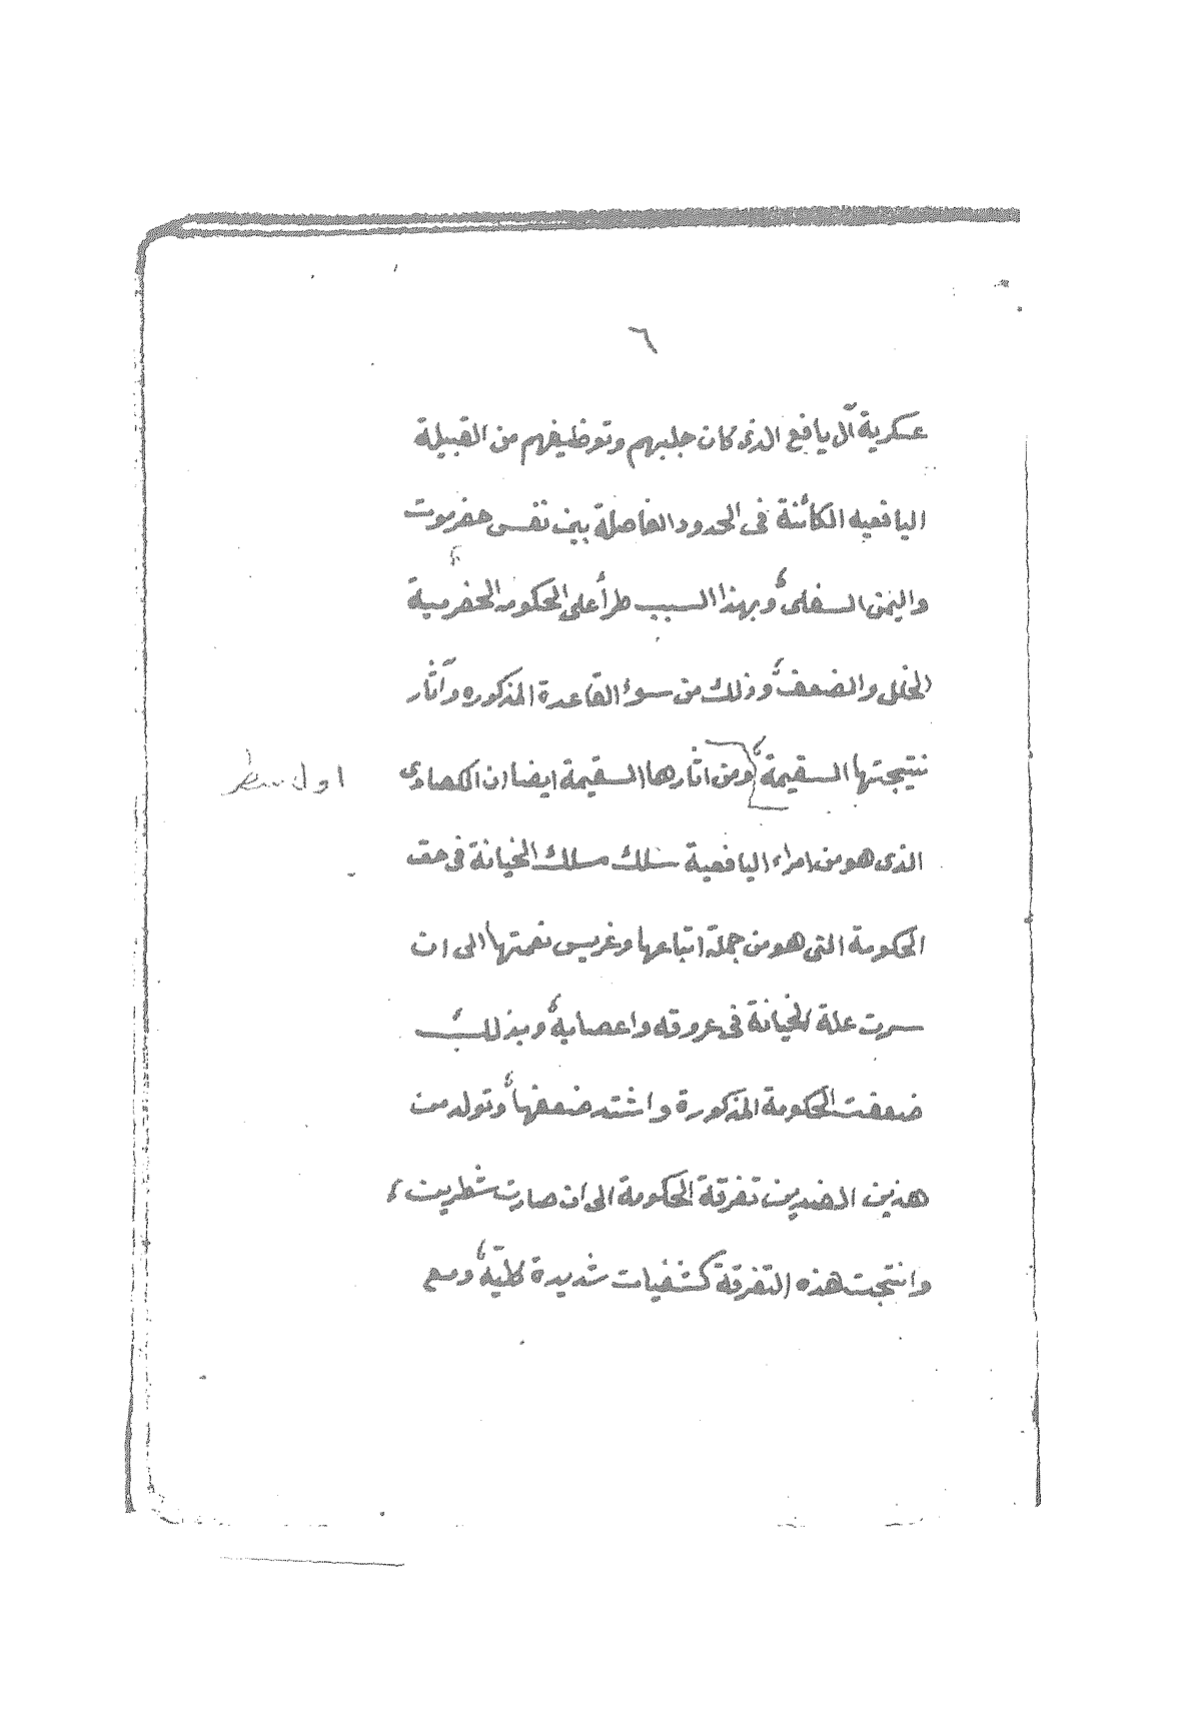 ٦
عسكرية آل يافع الذى كان جلبهم وتوظيفهم من القبيلة
اليافعيه الكائنة فى الحدود الفاصلة بين نفس حضرموت
واليمن السفلى، وبهذا السبب طرأ على الحكومه الحضرمية
الخلل والضعف، وذلك من سوء القاعدة المذكوره وآثار
نتيجتها السقيمة، ومن اثارها السقيمة ايضا ان الكصادى
اول سطر
الذى هو من امراء اليافعية سلك مسلك الخيانة فى حق
الحكومة التى هو من جملة اتباعها وغريس نعمتها الى ان
سرت علة الخيانة فى عروقه واعصابه، وبذلك
ضعفت الحكومة المذكورة واشتد ضعفها، وتولد من
هذين الضدين تفرقة الحكومة الى ان صارت شطرين،
وانتجت هذه التفرقة كشفيات شديدة كليّة، ومع